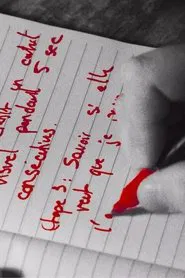 un contact
visuel pendant 5 sec
consécutives.
Étape 3 : Savoir si elle
veut que je
l'